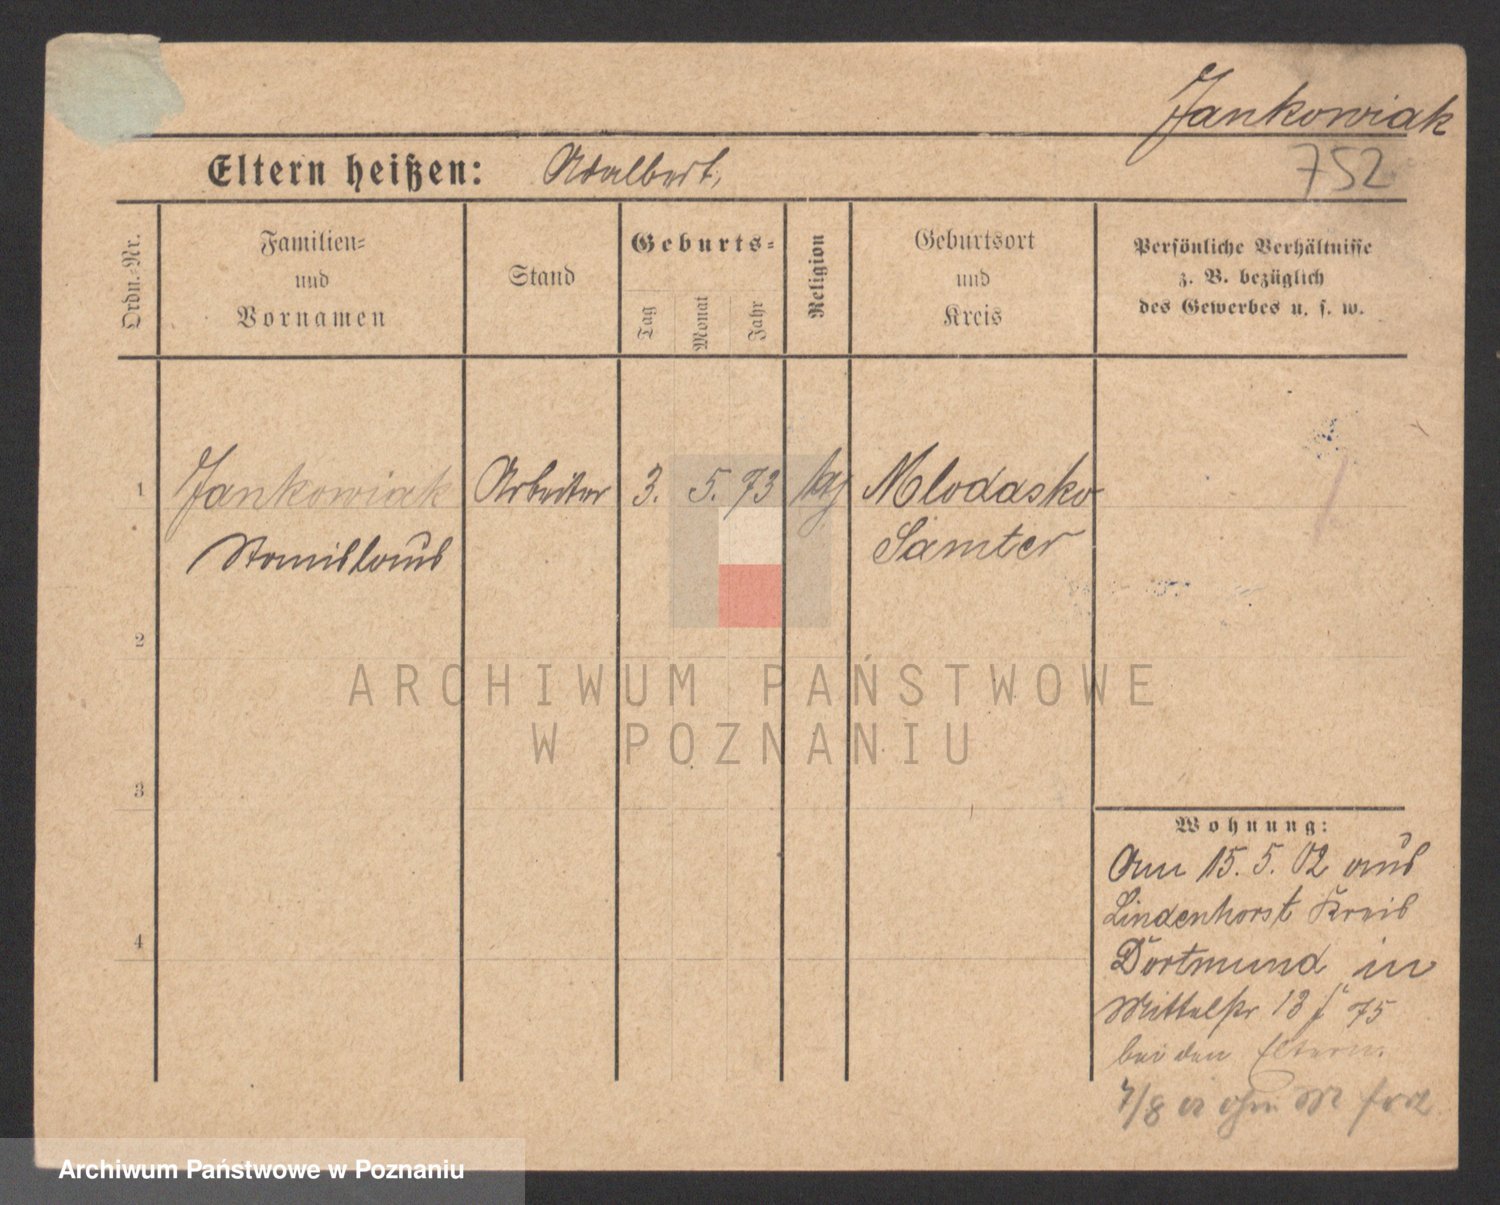 Jankowiak
752
Eltern heißen: Adalbert,
Ordn.-Nr.
Familien-
und
Vornamen
Stand
Geburts-
Tag
Monat
Jahr
Religion
Geburtsort
und
Kreis
Persönliche Verhältnisse
z. B. bezüglich
des Gewerbes u. s. w.
1 Jankowiak Arbeiter 3. 5. 73 Mlodasko
Stanislaus Samter
2
3
4
ARCHIWUM PAŃSTWOWE
W POZNANIU
Wohnung:
Am 15. 5. 02 aus
Lindenhorst Kreis
Dortmund in
Mittelstr 13 f 75
bei den Eltern.
7/8 02
Archiwum Państwowe w Poznaniu